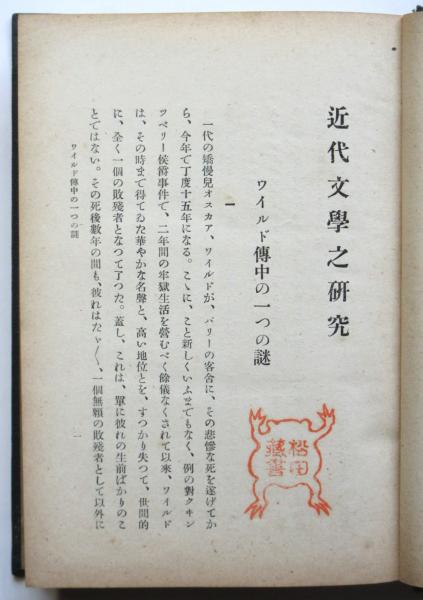 近代文學之研究
ワイルド傳中の一つの謎
松田
藏書
一
一代の嬌慢兒オスカア、ワイルドが、パリーの客舎に、その悲慘な死を遂げてか
ら、今年で丁度十五年になる。こゝに、こと新しくいふまでもなく、例の對クヰン
ツベリー侯爵事件で、二年間の牢獄生活を營むべく餘儀なくされて以來、ワイルド
は、その時まで得てゐた華やかな名聲と、高い地位とを、すつかり失つて、世間的
に、全く一個の敗殘者となつて了つた。蓋し、これは、單に彼れの生前ばかりのこ
とではない。その死後數年の間も、彼れはたゞ〳〵、一個無頼の敗殘者として以外に
ワイルド傳中の一つの謎
一